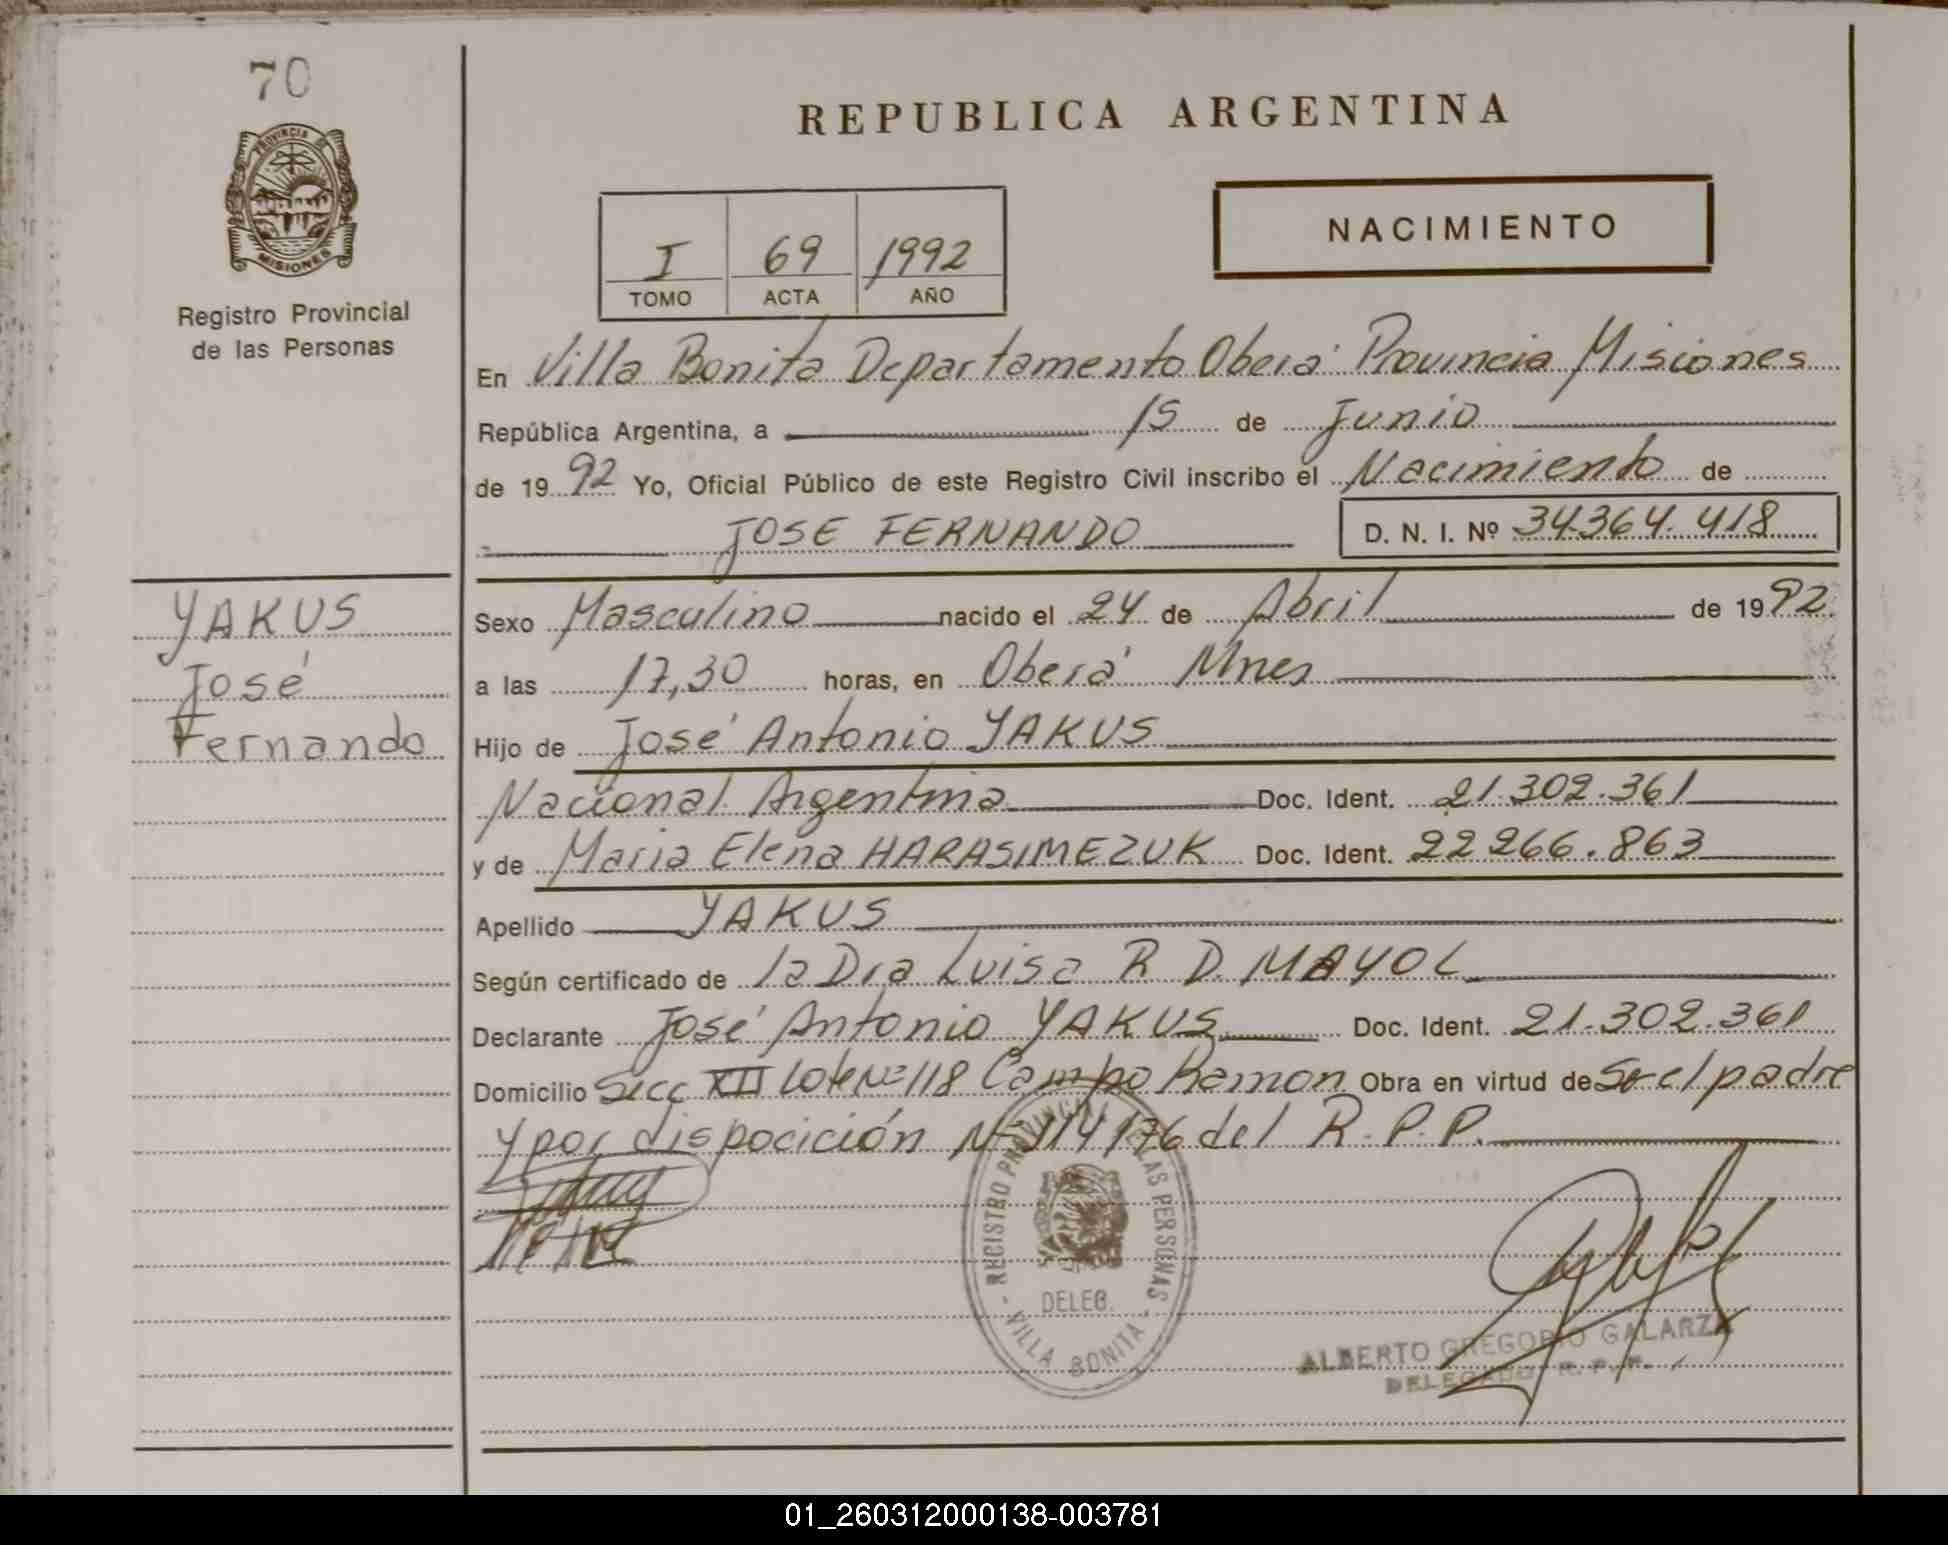 70
PROVINCIA
MISIONES
Registro Provincial
de las Personas
REPUBLICA ARGENTINA
I 69 1992
TOMO ACTA AÑO
NACIMIENTO
En Villa Bonita Departamento Oberá Provincia Misiones
República Argentina, a 15 de Junio
de 1992 Yo, Oficial Público de este Registro Civil inscribo el Nacimiento de
JOSE FERNANDO D. N. I. Nº 34.364.418
YAKUS
José
Fernando
Sexo Masculino nacido el 24 de Abril de 1992
a las 17,30 horas, en Oberá Mnes
Hijo de José Antonio YAKUS
Nacional Argentina Doc. Ident. 21.302.361
y de Maria Elena HARASIMEZUK Doc. Ident. 22.266.863
Apellido YAKUS
Según certificado de la Dra Luisa R D. MAYOL
Declarante José Antonio YAKUS Doc. Ident. 21.302.361
Domicilio Secc XII Lote Nº 118 Campo Ramon Obra en virtud de Ser el padre
y por disposición Nº 114/76 del R.P.P.
REGISTRO PROVINCIAL DE LAS PERSONAS
DELEG.
- VILLA BONITA -
ALBERTO GREGORIO GALARZA
DELEGADO R. P. P.
01_260312000138-003781